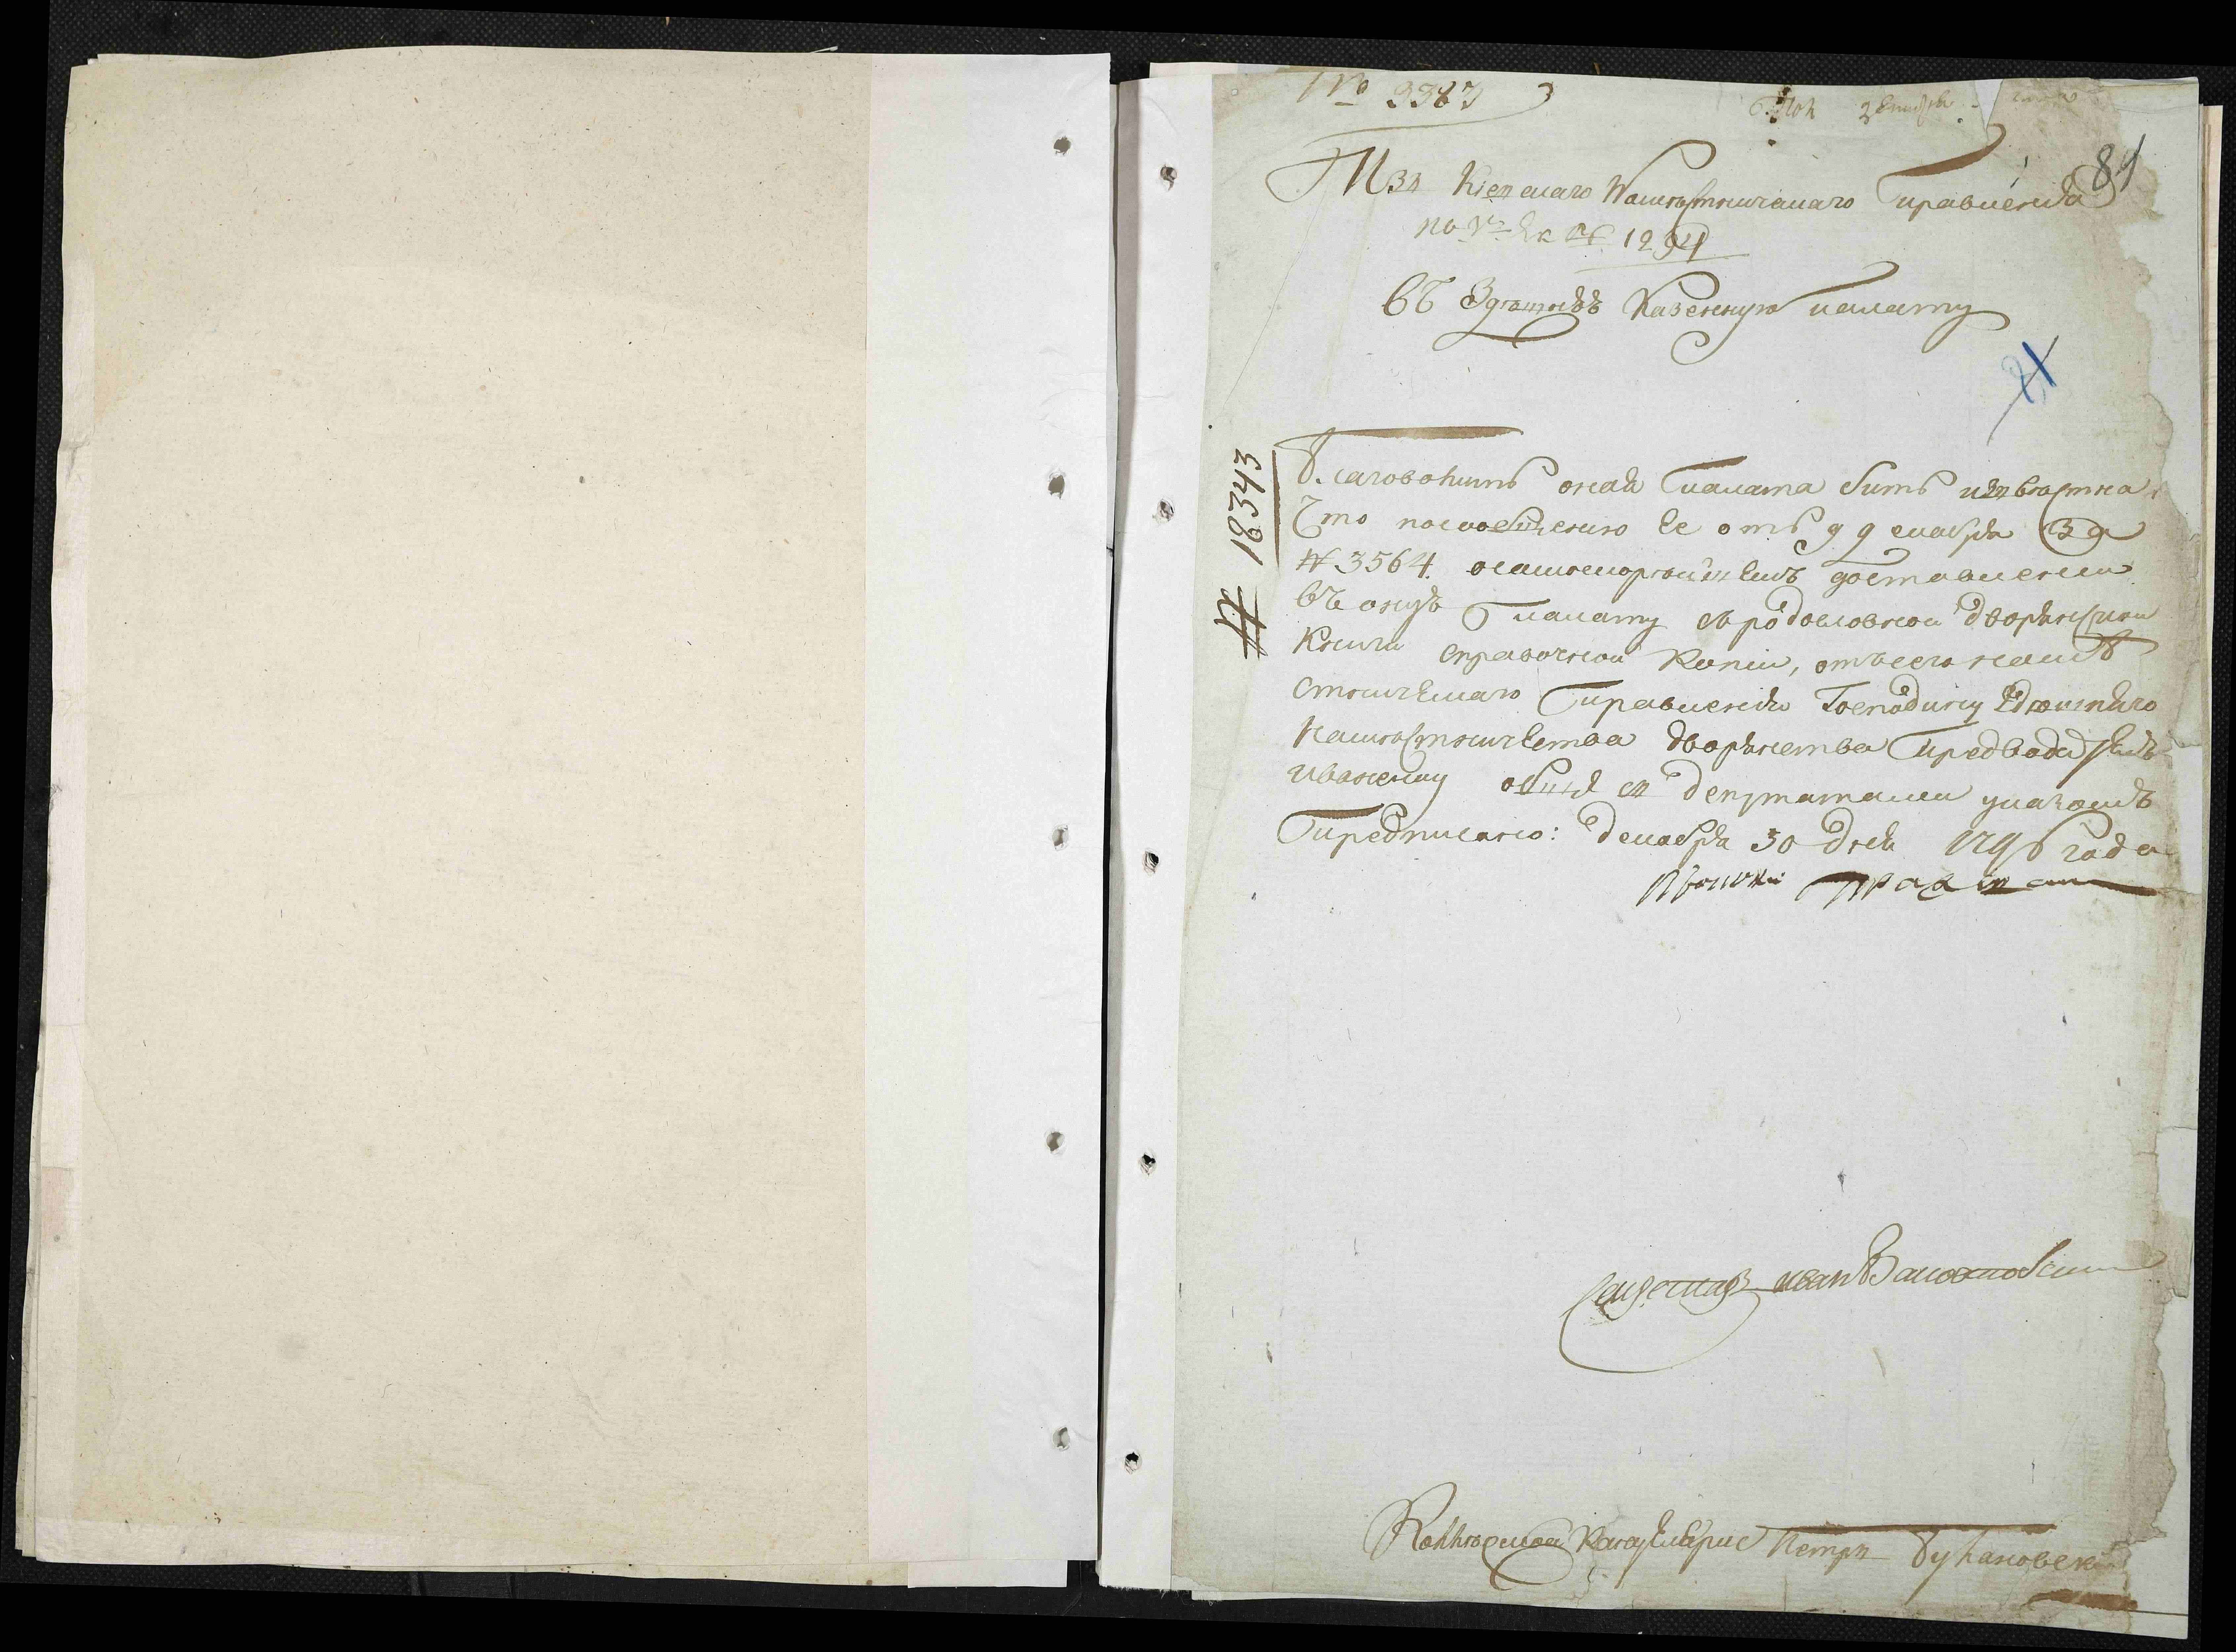 № 3383
81
Изъ Кіевскаго Намѣстническаго Правленія
1294
Въ Здѣшнюю Казенную палату
21
№ 18343
Благоволитъ оная Палата быть извѣстна,
Что посообщенію Ее отъ 9 декабря за
№ 3564. онаискорѣйшемъ доставленіи
въ оную Палату съ родословной дворянской
Книги справочной Копіи, отъсего намѣ
стническаго Правленія Господину Здѣшняго
Намѣстничества дворянства Предводителю
Иваненку обще съ депутатами указомъ
Предписано: декабря 30 дня 1796 года
Секретарь иванъ
Коллежской Канцеляристъ Петръ Булановскій